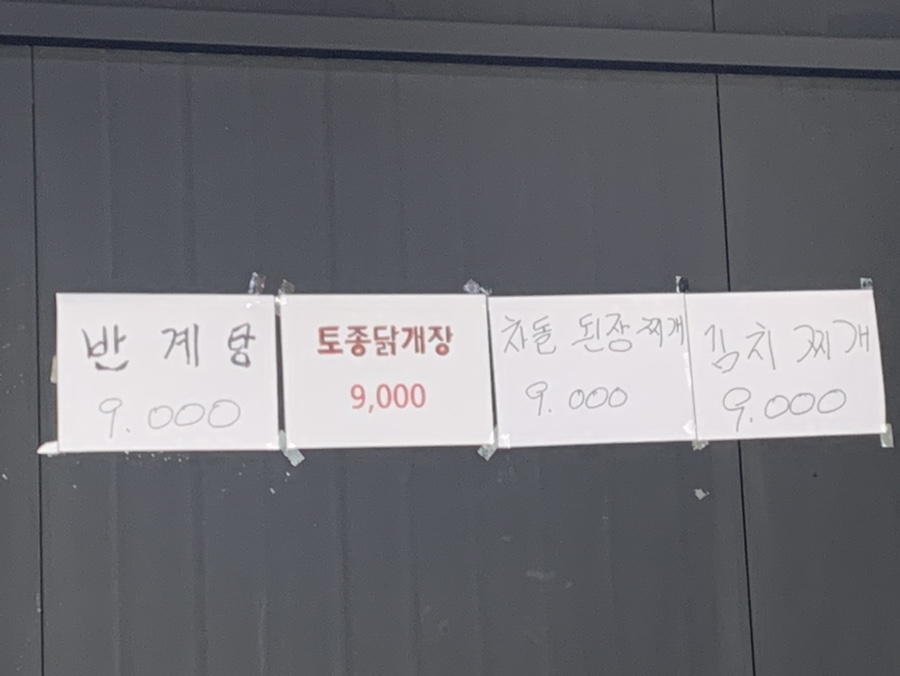 반계탕
9.000
토종닭개장
9,000
차돌 된장찌개
9.000
김치찌개
9.000